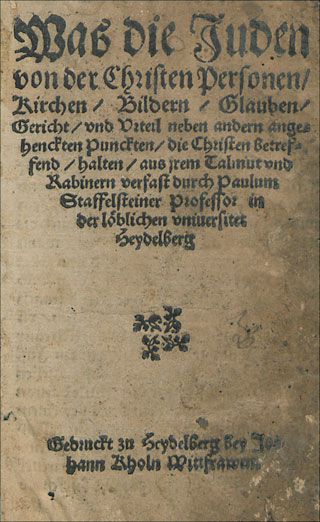 Was die Juden
von der Christen Personen/
Kirchen / Bildern / Glauben/
Gericht / vnd Vrteil neben andern ange-
henckten Punckten / die Christen betref-
fend / halten / aus jrem Talmut vnd
Rabinern verfast durch Paulum
Staffelsteiner Professor in
der löblichen vniuersitet
Heydelberg
Gedruckt zu Heydelberg bey Jo-
hann Kholn Wittfrawen